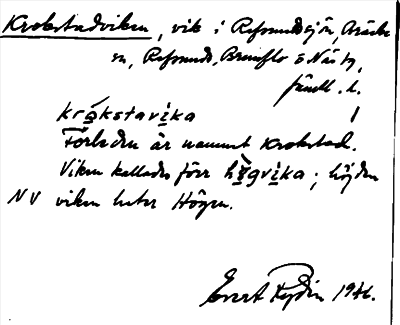 Krokstadviken, vik i Refsundssjön, Bräcke
sn, Refsunds, Brunflo o Näs tg,
Jämtl. l.
krå̀kstavi̱ka
Förleden är namnet Krokstad.
Viken kallades förr hö̀gvi̱ka; höjden
NV viken heter Högen.
Evert Rydin 1946.